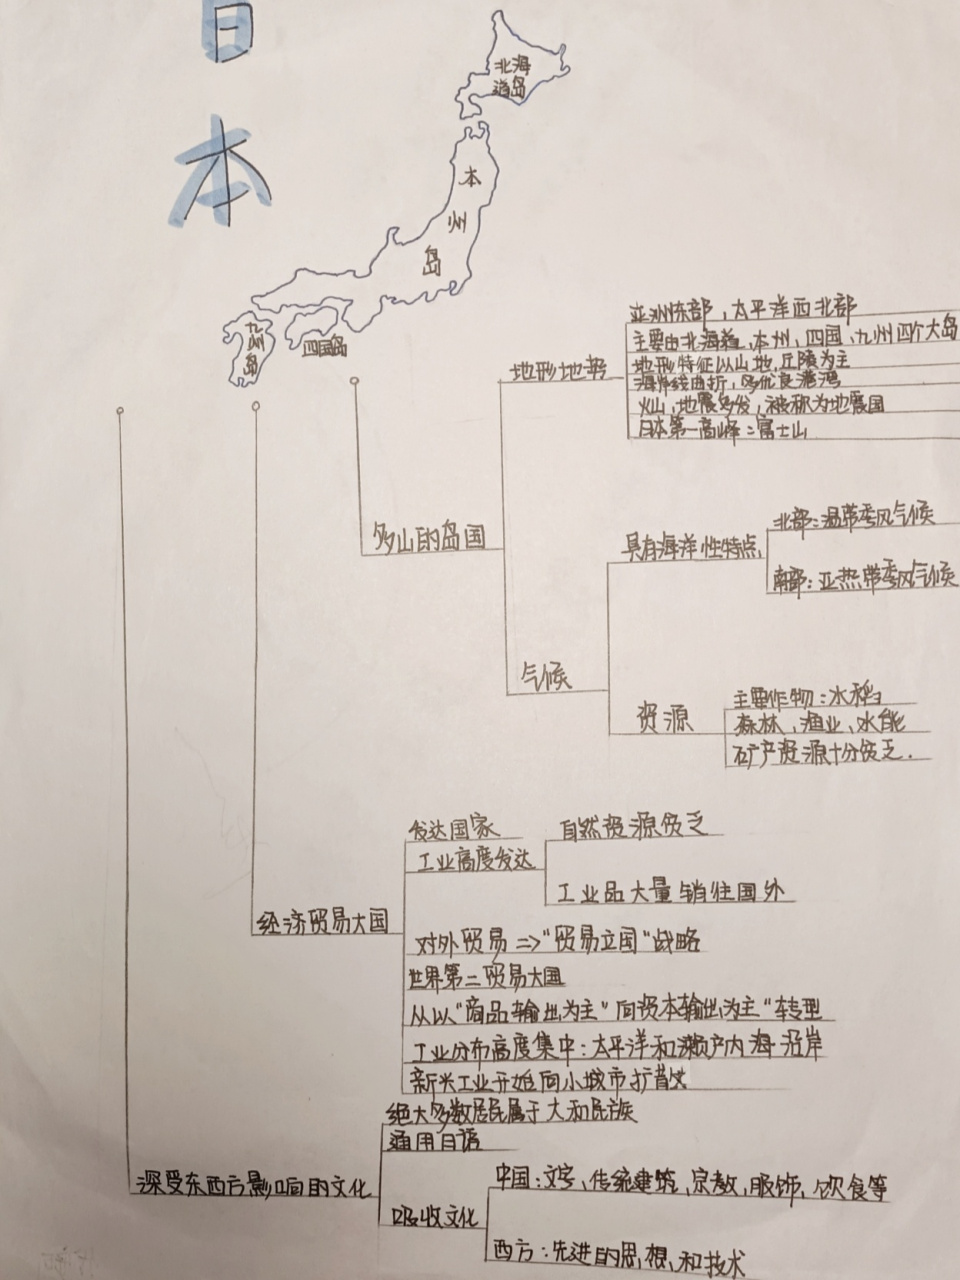 日
本
北海
道岛
本
州
岛
九
州
岛
四国岛
亚洲东部，太平洋西北部
主要由北海道、本州、四国、九州四个大岛
地形地势
地形特征以山地、丘陵为主
海岸线曲折，多优良港湾
火山、地震多发，被称为地震国
日本第一高峰：富士山
多山的岛国
北部：温带季风气候
具有海洋性特点
南部：亚热带季风气候
气候
主要作物：水稻
资源
森林、渔业、水能
矿产资源十分贫乏.
发达国家
自然资源贫乏
工业高度发达
工业品大量销往国外
经济贸易大国
对外贸易=>"贸易立国"战略
世界第二贸易大国
从以"商品输出为主"向资本输出为主"转型
工业分布高度集中：太平洋和濑户内海沿岸
新兴工业开始向小城市扩散
绝大多数居民属于大和民族
通用日语
深受东西方影响的文化
中国：文字、传统建筑、宗教、服饰、饮食等
吸收文化
西方：先进的思想、和技术